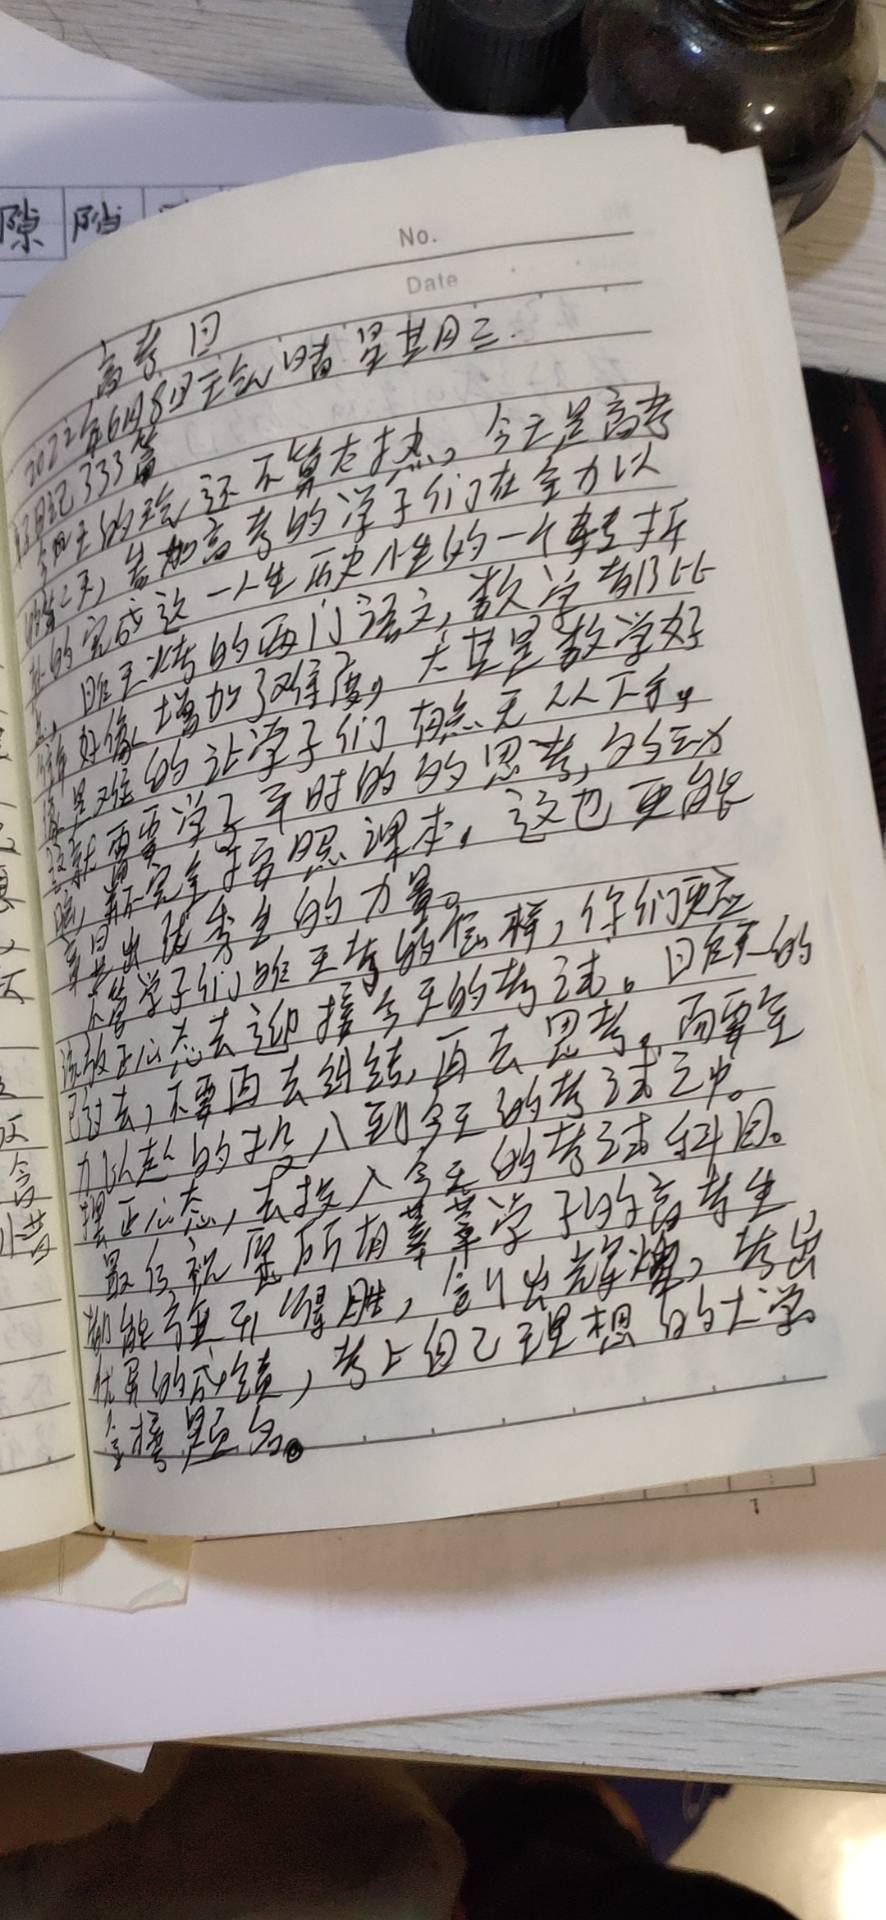 隙
No.
Date
高考 日
2022年6月8日天气 晴 星其月三.
日记333篇
今天的天气还不算太热。今天是高考
的第二天,参加高考的学子们在全力以
赴的完成这一人生历史人生的一个转折
点。昨天考的两门语文,数学都比
往年好像增加了难度。尤其是数学好
像是难的让学子们有点无从下手。
这就需要学子平时的的思考,的
完全按照课本。这也更能
出优秀生的力量。
不管学子们昨天考的怎样,你们更应
该放正心态去迎接今天的考试。昨天的
已过去,不要再去纠结,再去思考。而要全
力以赴的投入到今天的考试之中。
摆正心态,去投入今天的考试科目。
最后祝愿所有莘莘学子的高考生
都能旗开得胜,创出辉煌,考出
优异的成绩,考上自己理想的大学。
金榜题名。